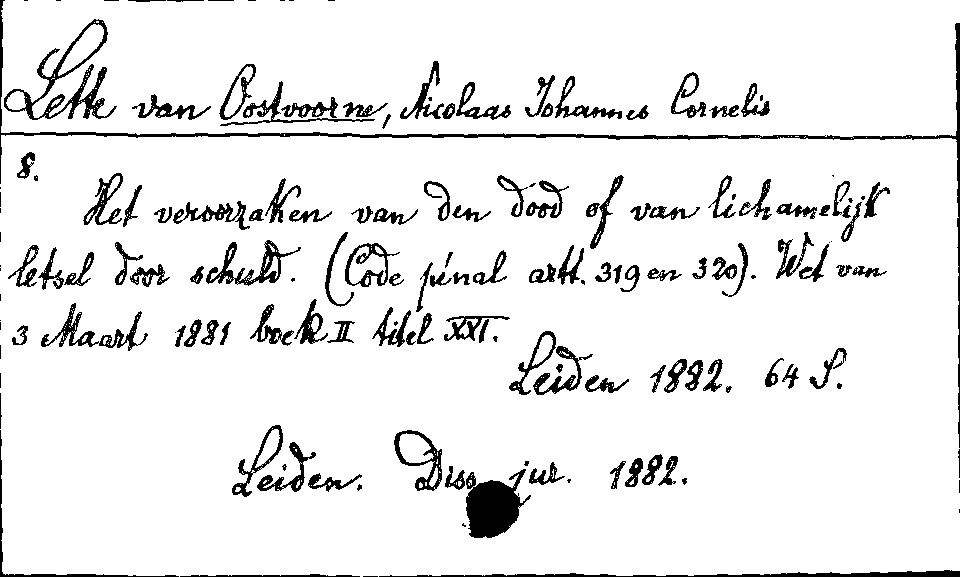 Lette van Oostvoorne, Nicolaas Johannes Cornelis
8.
Het veroorzaken van den dood of van lichamelijk
letsel door schuld. (Code pénal artt. 319 en 320). Wet van
3 Maart 1881 boek II titel XXI.
Leiden 1882. 64 S.
Leiden. Diss. jur. 1882.